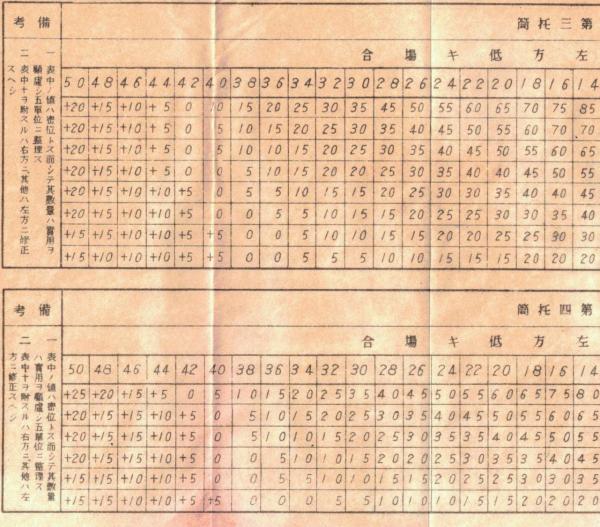 備考
第三托筒
左方低キ場合
50 48 46 44 42 40 38 36 34 32 30 28 26 24 22 20 18 16 14
+20 +15 +10 +5 0 10 15 20 25 30 35 45 50 55 60 65 70 75 85
+20 +15 +10 +5 0 5 10 15 20 25 30 35 40 45 50 55 60 70 70
+20 +15 +10 +5 0 5 10 10 15 20 25 30 35 40 45 50 55 60 65
+20 +15 +10 +5 0 0 5 10 15 20 20 25 30 35 40 40 45 50 55
+20 +15 +10 +10 +5 0 0 5 5 10 15 15 20 25 30 30 35 40 40 45
+20 +15 +10 +10 +5 0 0 5 5 10 15 15 20 20 25 25 30 30 35 40
+15 +15 +10 +10 +5 +5 0 0 5 10 10 15 15 20 20 25 25 30 30
+15 +10 +10 +10 +5 +5 0 0 5 5 5 10 10 15 15 15 20 20 20
一 表中ノ値ハ密位トス而シテ其數量ハ實用ヲ
顧慮シ五單位ニ整理ス
二 表中+ヲ附スルハ右方ニ其他ハ左方ニ修正
スヘシ
備考
第四托筒
左方低キ場合
50 48 46 44 42 40 38 36 34 32 30 28 26 24 22 20 18 16 14
+25 +20 +15 +5 0 5 10 15 20 25 30 35 40 45 50 55 60 65 75 80
+20 +15 +15 +10 +5 0 5 10 15 20 25 30 35 40 45 50 55 60 65
+20 +15 +15 +10 +5 0 5 10 10 15 20 25 30 35 35 40 45 50 55
+20 +15 +15 +10 +5 0 0 5 10 10 15 20 20 25 30 35 35 40 45
+15 +15 +10 +10 +5 0 0 5 5 10 10 15 15 20 25 25 30 30 35
+15 +15 +10 +10 +5 +5 0 0 0 5 5 10 10 10 15 15 20 20 20
一 表中ノ値ハ密位トス而シテ其數量
ハ實用ヲ顧慮シ五單位ニ整理ス
二 表中+ヲ附スルハ右方ニ其他ハ左
方ニ修正スヘシ